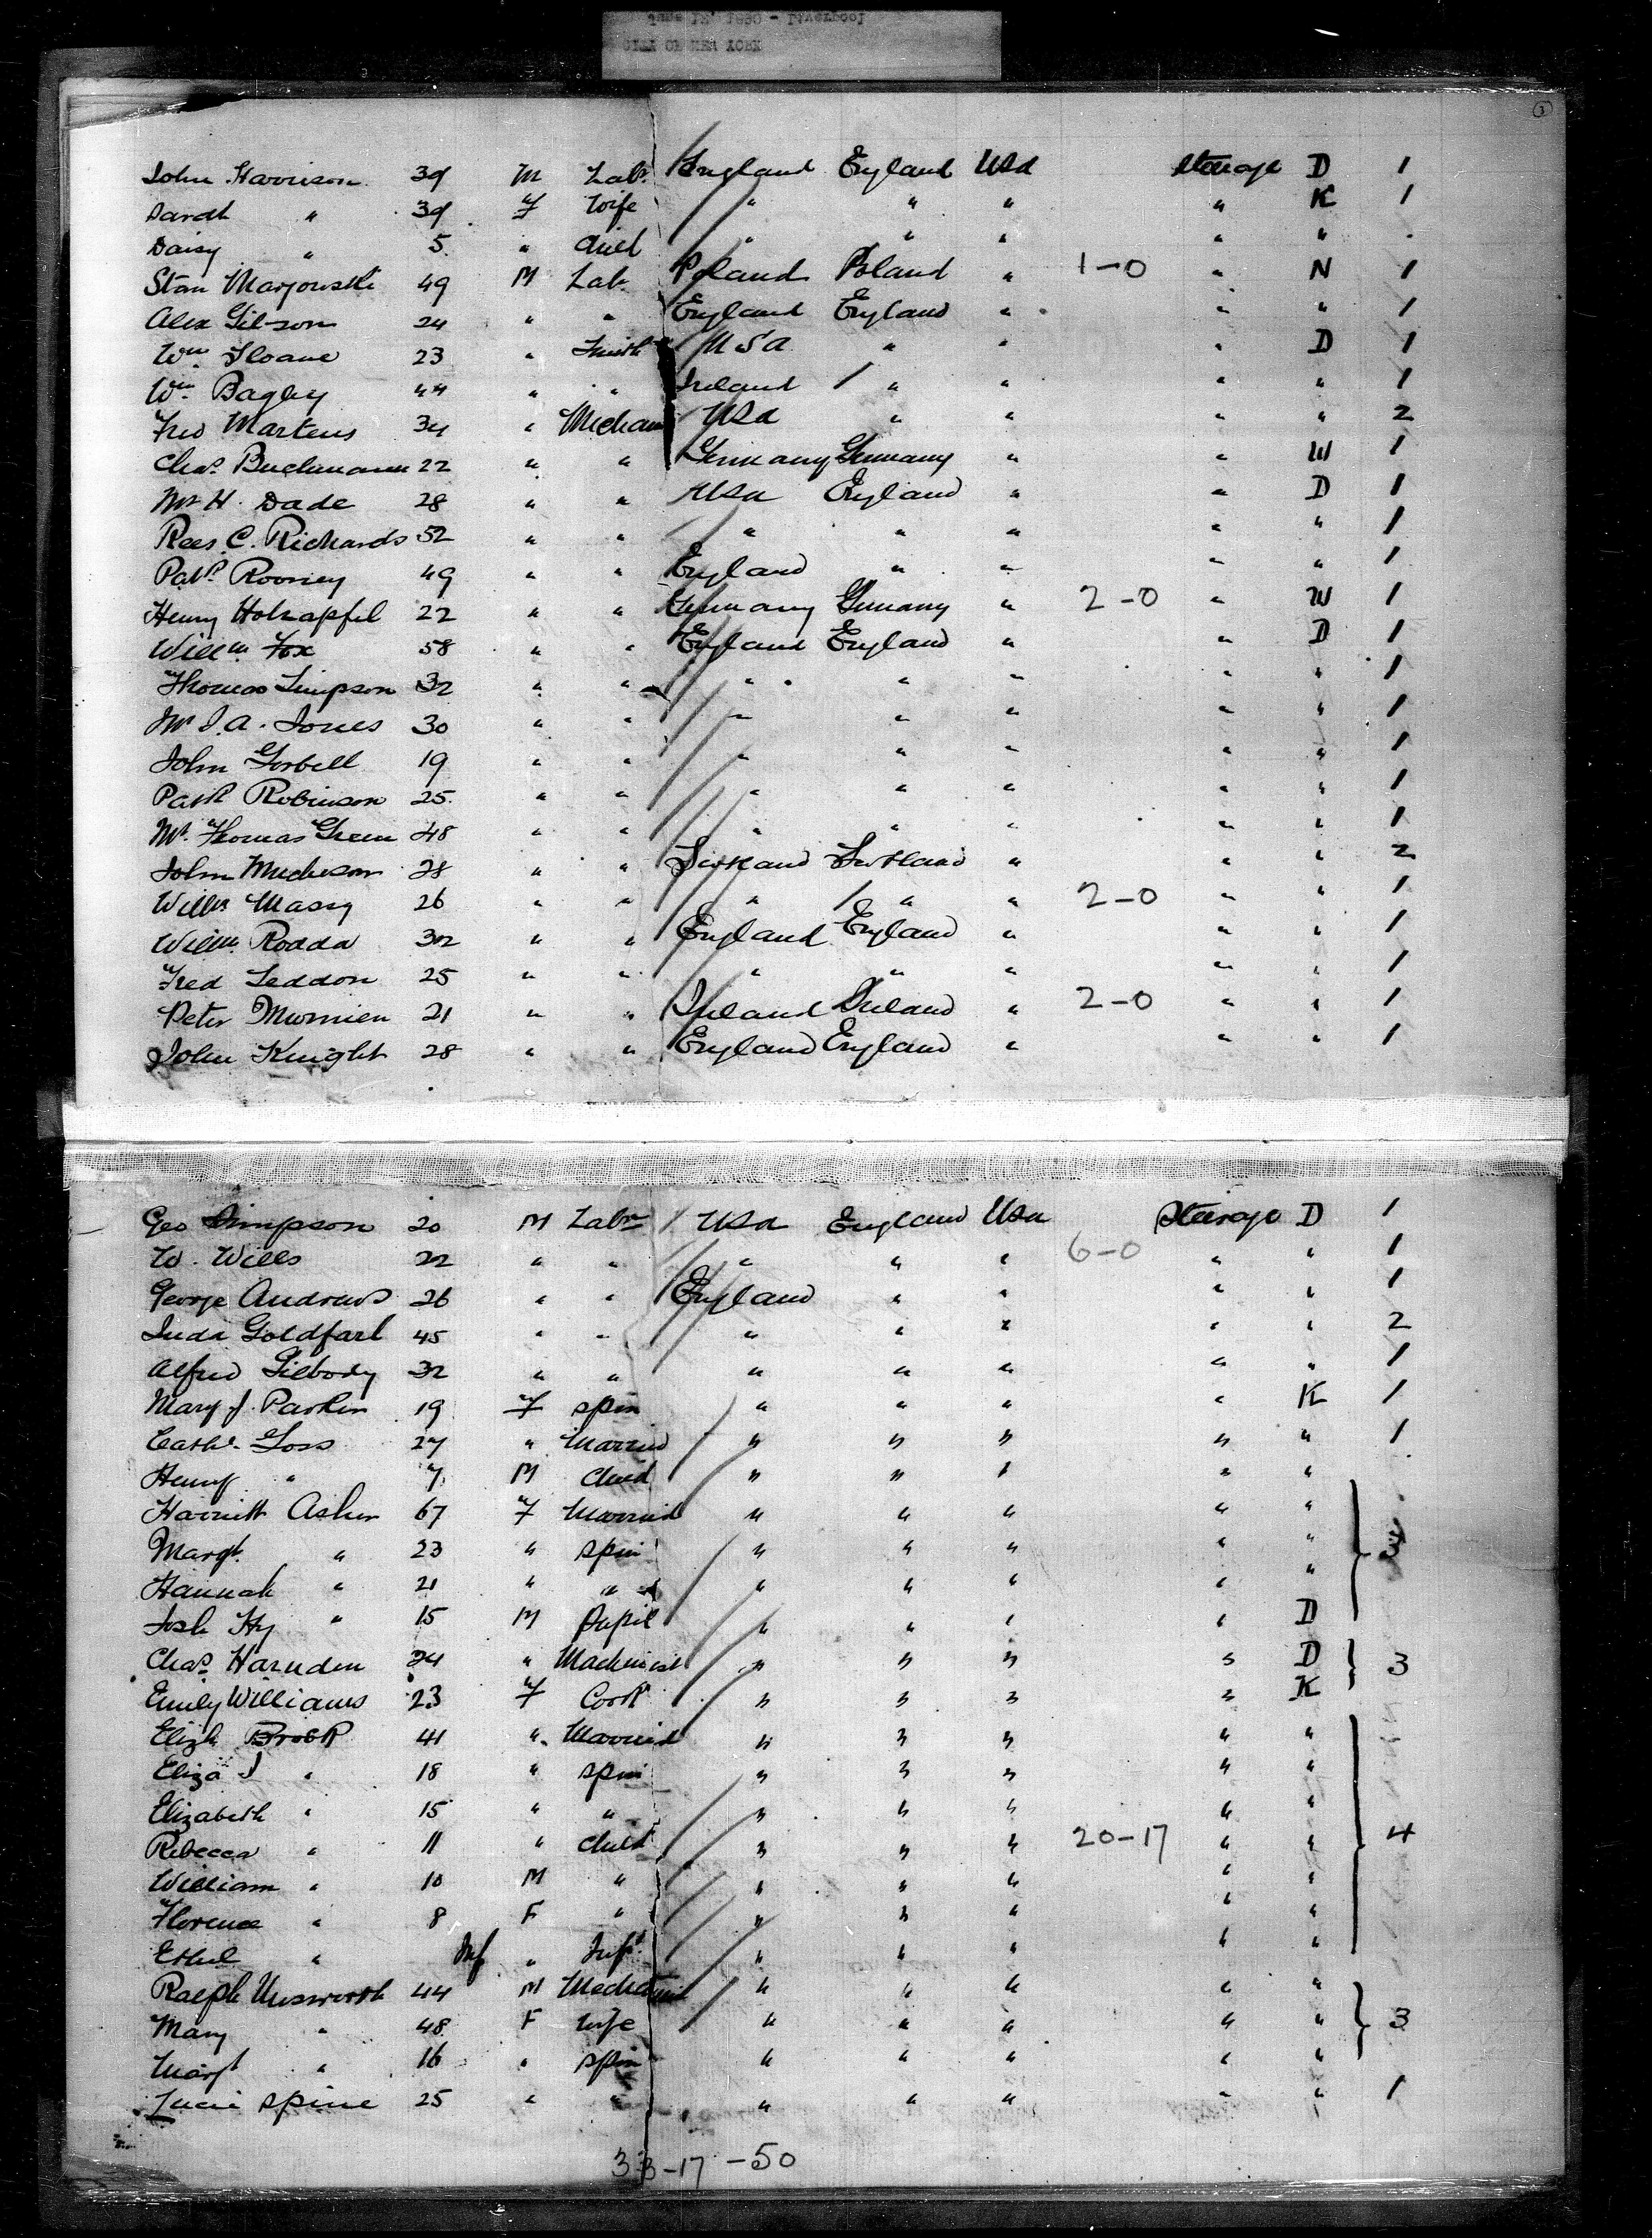 John Harrison 39 M Labr England England USA Steerage D 1
Sarah " 39 F Wife " " " " K 1
Daisy " 5 " Child " " " " "
Stan 49 M Labr Poland Poland " 1-0 " N 1
Alex Gibson 24 " " England England " " " 1
Wm Sloane 23 " Smith USA " " " D 1
Wm Bagley 44 " " Ireland " " " " 1
Fred Martens 34 " USA " " " " 2
Chas. Buchmann 22 " " Germany Germany " " W 1
Mr H. Dade 28 " " USA England " " D 1
Rees C. Richards 52 " " " " " " " 1
Patk Rooney 49 " " England " " " " 1
Henry Holzapfel 22 " " Germany Germany " 2-0 " W 1
Willm Fox 58 " " England England " " D 1
Thomas Simpson 32 " " " " " " " 1
Mr J. A. Jones 30 " " " " " " " 1
John Gorbell 19 " " " " " " " 1
Patk Robinson 25 " " " " " " " 1
Mr Thomas Green 48 " " " " " " " 1
John 28 " " Scotland Scotland " " " 2
Willm Massy 26 " " " " " 2-0 " " 1
Willm Rodda 32 " " England England " " " 1
Fred Seddon 25 " " " " " " " 1
Peter 21 " " Ireland Ireland " 2-0 " " 1
John Knight 28 " " England England " " " 1
Geo Simpson 20 M Labr USA England USA Steerage D 1
W. Wills 22 " " " " " 6-0 " " 1
George Andrews 26 " " England " " " " 1
Juda Goldfarb 45 " " " " " " " 2
Alfred Gilbody 32 " " " " " " " 1
Mary J. Parkin 19 F spin " " " " K 1
Cathe. Goss 27 " Married " " " " " 1
Henry " 7 M Child " " " " "
Harriett Asher 67 F Married " " " " "
Margt. " 23 " spin " " " " "
Hannah " 21 " " " " " " "
Josh Hy " 15 M Pupil " " " " D
Chas. Harnden 24 " Machinist " " " " D 3
Emily Williams 23 F Cook " " " " K
Elizh Brook 41 " Married " " " " "
Eliza J " 18 " spin " " " " "
Elizabeth " 15 " " " " " " "
Rebecca " 11 " Child " " " 20-17 " " 4
William " 10 M " " " " " "
Florence " 8 F " " " " " "
Ethel " Inf " Inft. " " " " "
Ralph Unsworth 44 M " " " " "
Mary " 48 F Wife " " " " " 3
Margt " 16 " spin " " " " "
Lucie Spine 25 " " " " " " " 1
33-17-50